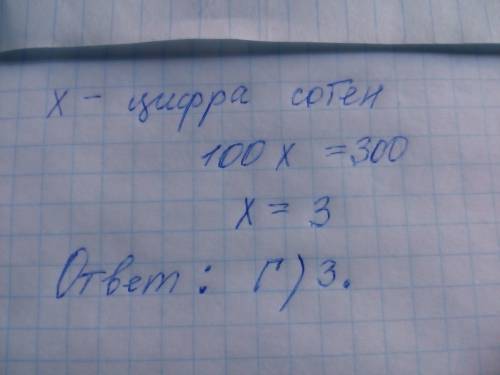 x - цифра сотен
100 x = 300
x = 3
Ответ: Г) 3.